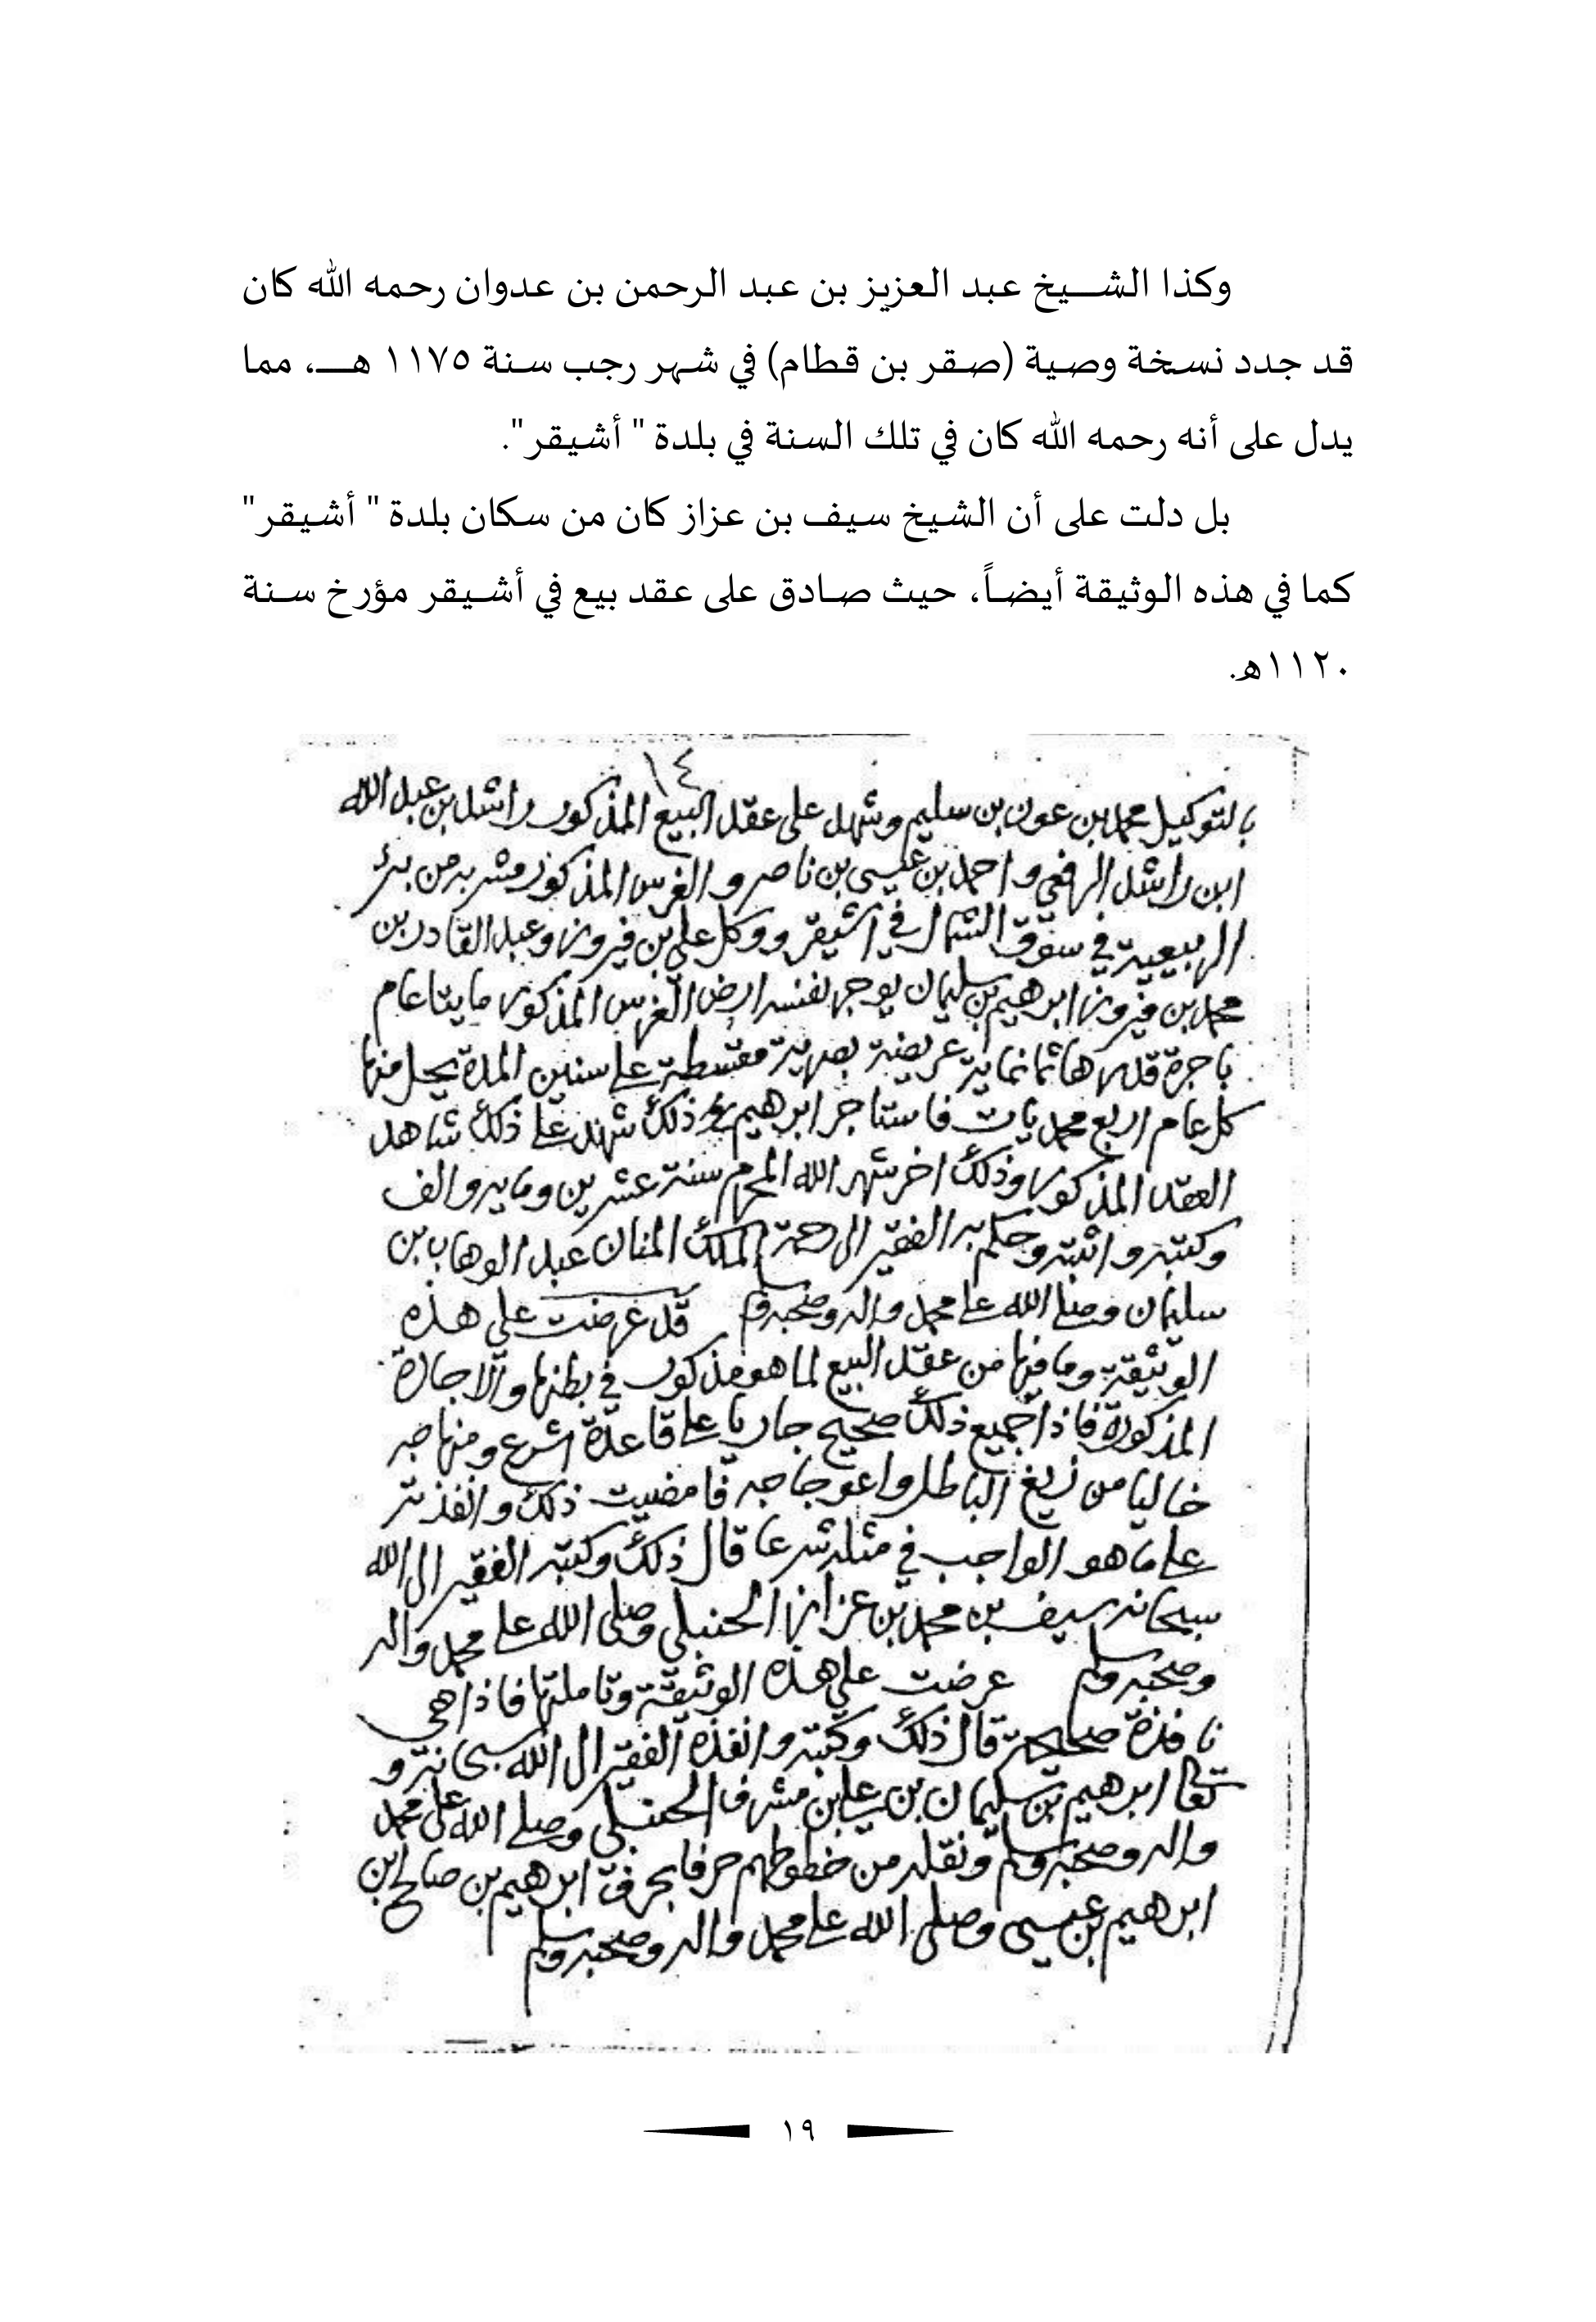 وكذا الشيخ عبد العزيز بن عبد الرحمن بن عدوان رحمه الله كان
قد جدد نسخة وصية (صقر بن قطام) في شهر رجب سنة ١١٧٥ هـ، مما
يدل على أنه رحمه الله كان في تلك السنة في بلدة " أشيقر".
بل دلت على أن الشيخ سيف بن عزاز كان من سكان بلدة " أشيقر"
كما في هذه الوثيقة أيضاً، حيث صادق على عقد بيع في أشيقر مؤرخ سنة
١١٢٠هـ.
١٤
بالتوكيل محمد بن عون بن سليم وشهد على عقد البيع المذكور راشد بن عبد الله
ابن راشد الرفعي واحمد بن عيسى بن ناصر والغرس المذكور وشربه من بئر
الربيعية في سوق الشمال في اشيقر ووكل علي بن فيروز وعبد القادر بن
محمد بن فيروز ابرهيم بن سليمان يوجر لنفسه ارض الغرس المذكور مايتا عام
باجرة قدرها ثمانماية عريضية بصرية مقسطة على سنين المدة يحل منها
كل عام اربع محمديات فاستاجر ابرهيم ذلك شهد على ذلك شاهد
العقد المذكور وذلك اخر شهر الله المحرم سنة عشرين وماية والف
وكتبه واثبته وحكم به الفقير الى رحمة الملك المنان عبد الوهاب بن
سليمان وصلى الله على محمد واله وصحبه وسلم قد عرضت علي هذه
الوثيقة وما فيها من عقد البيع لما هو مذكور في بطنها والاجارة
المذكورة فاذا جميع ذلك صحيح جاريا على قاعدة الشرع ومنهاجه
خاليا من زيغ الباطل واعوجاجه فامضيت ذلك وانفذته
على ما هو الواجب في مثله شرعا قال ذلك وكتبه الفقير الى الله
سبحانه سيف بن محمد بن عزاز الحنبلي وصلى الله على محمد واله
وصحبه وسلم عرضت علي هذه الوثيقة وتاملتها فاذا هي
نافذة صحيحة قال ذلك وكتبه وانفذه الفقير الى الله سبحانه و
تعالى ابرهيم بن سليمان بن علي بن مشرف الحنبلي وصلى الله على محمد
واله وصحبه وسلم ونقله من خطوطهم حرفا بحرف ابرهيم بن صالح ابن
ابرهيم بن عيسى وصلى الله على محمد واله وصحبه وسلم
١٩